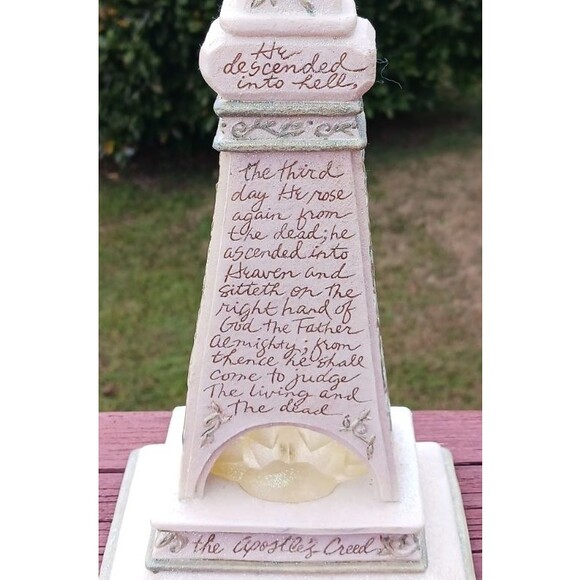 He
descended
into hell,
the third
day He rose
again from
the dead; he
ascended into
Heaven and
sitteth on the
right hand of
God the Father
Almighty; from
thence he shall
come to judge
The living and
The dead
the Apostle's Creed